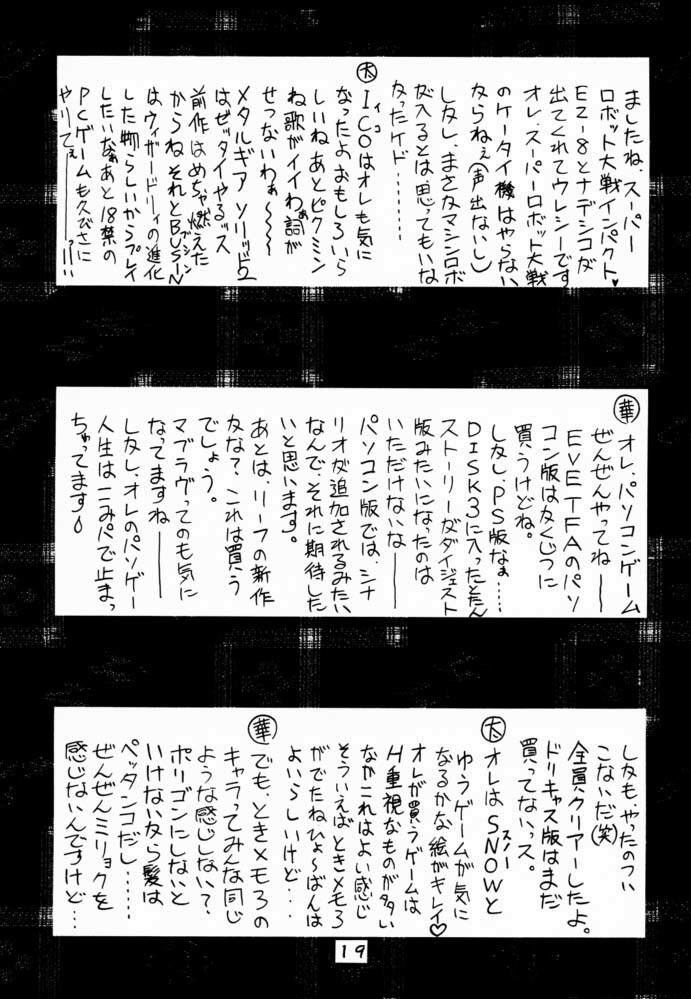 ましたね、スーパー
ロボット大戦インパクト♥
EZ-8とナデシコが
出てくれてウレシーです
オレ、スーパーロボット大戦
のケータイ機はやらない
からねぇ(声出ないし)
しかし、まさかマシンロボ
が入るとは思ってもいな
かったケド………
太 ICOはオレも気に
イコ
なったよおもしろいら
しいねあとピクミン
ね歌がイイわぁ詞が
せつないわぁ〜〜〜
メタルギアソリッド2
はゼッタイやるッス
前作はめちゃ燃えた
からねそれとBUSIN
ブシン
はウィザードリィの進化
した物らしいからプレイ
したいなぁあと18禁の
PCゲームも久びさに
やりてぇ――――っ!!!
華 オレ、パソコンゲーム
ぜんぜんやってね――
EVE TFAのパソ
コン版はかくじつに
買うけどね。
しかし、PS版なぁ……
DISK3に入ったとたん
ストーリーがダイジェスト
版みたいになったのは
いただけないな――
パソコン版では、シナ
リオが追加されるみたい
なんで、それに期待した
いと思います。
あとは、リーフの新作
かな?、これは買う
でしょう。
マブラヴってのも気に
なってますね――
しかし、オレのパソゲー
人生はこみパで止まっ
ちゃってます
しかも、やったのつい
こないだ(笑)
全員クリアーしたよ。
ドリキャス版はまだ
買ってないっス。
太 オレはSNOWと
スノー
ゆうゲームが気に
なるかな絵がキレイ♡
オレが買うゲームは
H重視なものが多い
なかこれはよい感じ
そういえばときメモ3
がでたねひょ〜ばんは
よいらしいけど…
華 でも、ときメモ3の
キャラってみんな同じ
ような感じしない?
ポリゴンにしないと
いけないから髪は
ペッタンコだし……
ぜんぜんミリョクを
感じないんですけど…
19